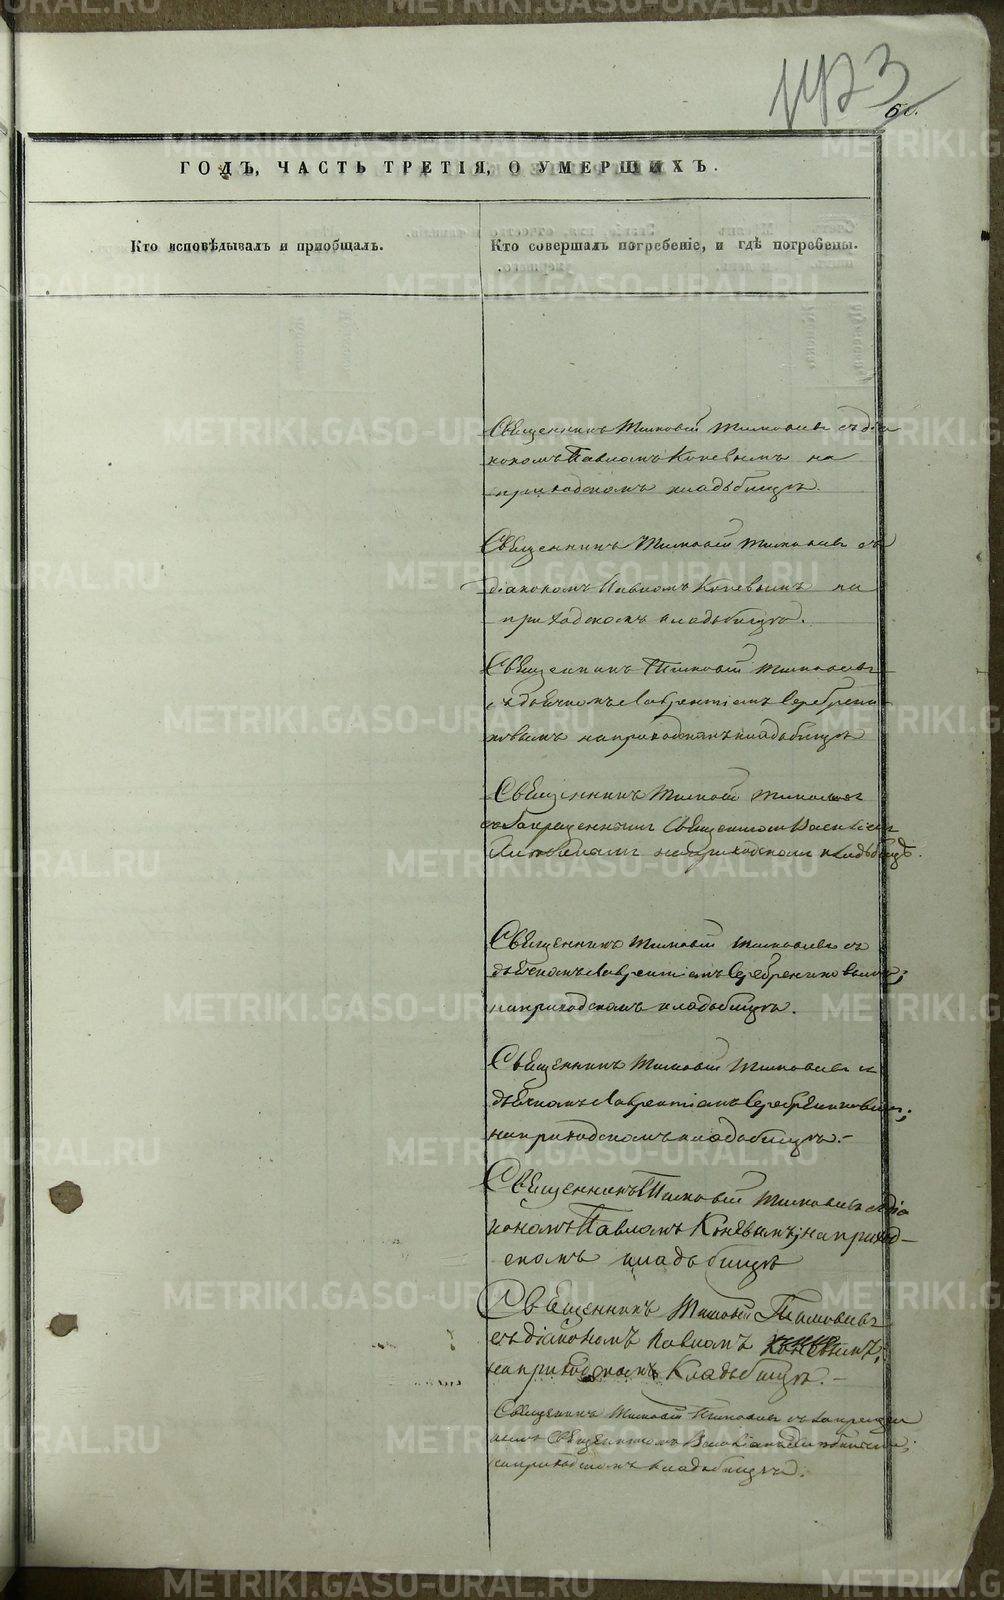 1423
60.
ГОДЪ, ЧАСТЬ ТРЕТІЯ, О УМЕРШИХЪ.
Кто исповѣдывалъ и пріобщалъ.
Кто совершалъ погребеніе, и гдѣ погребены.
Священникъ Тимофей Тимофеевъ съ діа
кономъ Павломъ Коневымъ на
приходскомъ кладьбищѣ.
Священникъ Тимофей Тимофеевъ съ
діакономъ Павломъ Коневымъ на
приходскомъ кладьбищѣ.
Священникъ Тимофей Тимофеевъ
съ дьячкомъ Лаврентіемъ Серебрени
ковымъ на приходскомъ кладьбищѣ
Священникъ Тимофей Тимофеевъ
съ Запрещеннымъ Священникомъ
на приходскомъ кладьбищѣ.
Священникъ Тимофей Тимофеевъ съ
дьячкомъ Лаврентіемъ Серебрениковымъ;
на приходскомъ кладьбищѣ.
Священникъ Тимофей Тимофеевъ съ
дьячкомъ Лаврентіемъ Серебрениковымъ;
на приходскомъ кладьбищѣ.-
Священникъ Тимофей Тимофеевъ съ діа
кономъ Павломъ Коневымъ; на приход-
скомъ кладьбищѣ
Священникъ Тимофей Тимофеевъ
съ діакономъ Павломъ Коневымъ;
на приходскомъ Кладьбищѣ.-
Священникъ Тимофей Тимофеевъ съ запрещен
нымъ Священникомъ
на приходскомъ кладьбищѣ.
METRIKI.GASO-URAL.RU